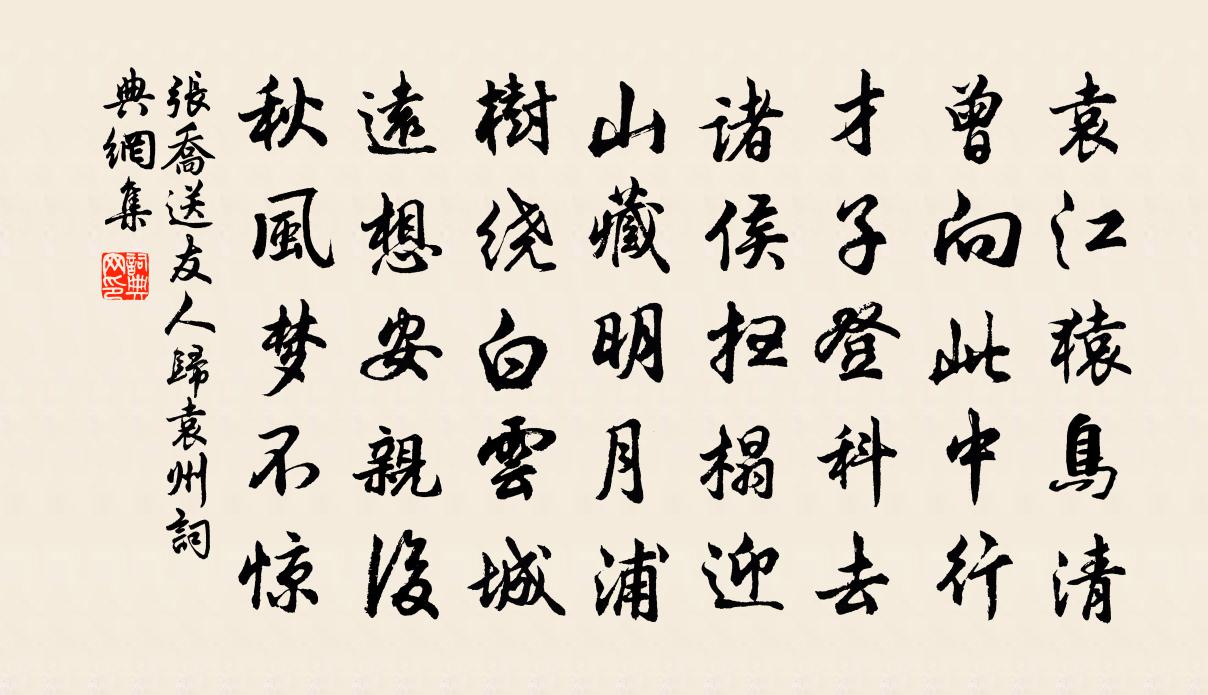 袁江猿鳥清
曾向此中行
才子登科去
诸侯扫榻迎
山藏明月浦
樹绕白雲城
遠想安親後
秋風梦不惊
張喬送友人歸袁州詞
典網集
詞典
网印